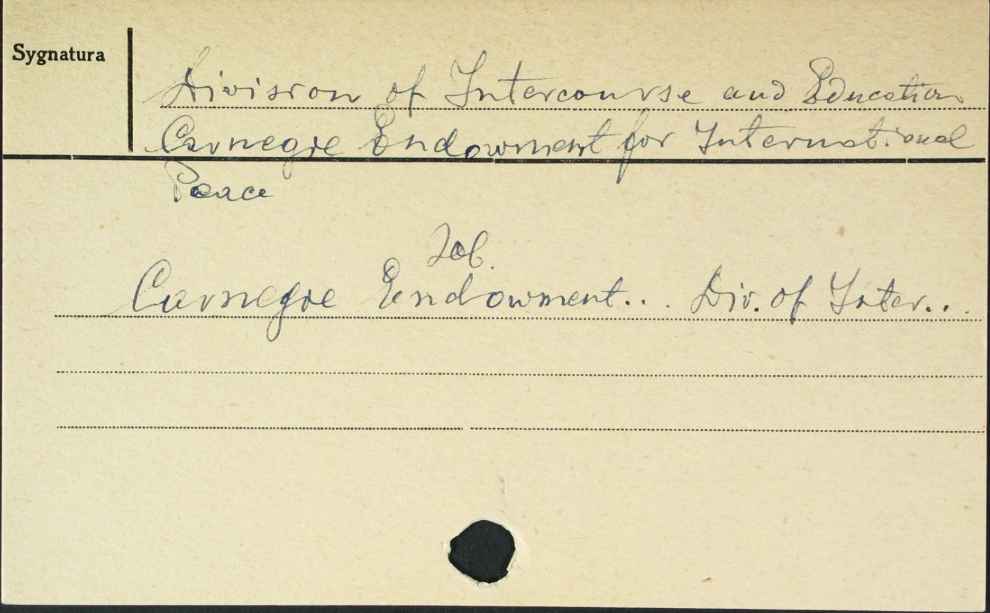 Sygnatura
Division of Intercourse and Education
Carnegie Endowment for International
Peace
Zob.
Carnegie Endowment... Div. of Inter...